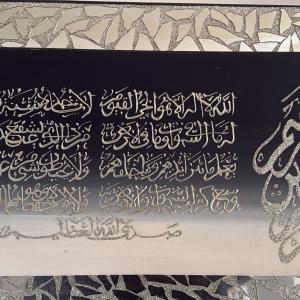 الله لا اله الا هو الحي القيوم لا تأخذه سنة
له ما في السموات وما في الارض من ذا الذي يشفع
يعلم ما بين ايديهم وما خلفهم ولا يحيطون بشيء
وسع كرسيه السموات والارض ولا يؤده حفظهما
صدق الله العظيم